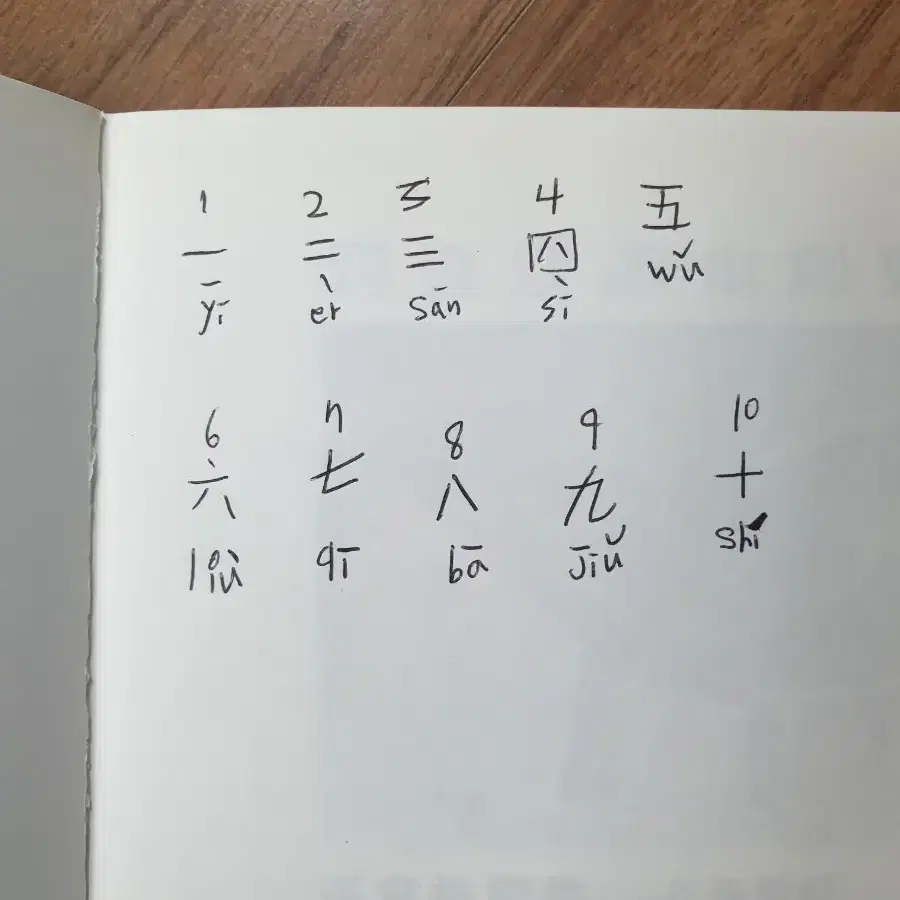 1 2 3 4 五
一 二 三 四 wǔ
yī èr sān sì
6 7 8 9 10
六 七 八 九 十
liù qī bā jiǔ shí